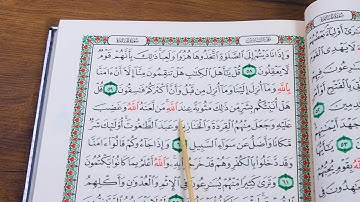 وَإِذَا نَادَيْتُمْ إِلَى ٱلصَّلَوٰةِ ٱتَّخَذُوهَا هُزُوًا وَلَعِبًا ذَٰلِكَ بِأَنَّهُمْ قَوْمٌ
لَّا يَعْقِلُونَ ٥٨ قُلْ يَٰٓأَهْلَ ٱلْكِتَٰبِ هَلْ تَنقِمُونَ مِنَّآ إِلَّآ أَنْ ءَامَنَّا
بِٱللَّهِ وَمَآ أُنزِلَ إِلَيْنَا وَمَآ أُنزِلَ مِن قَبْلُ وَأَنَّ أَكْثَرَكُمْ فَٰسِقُونَ ٥٩ قُلْ
هَلْ أُنَبِّئُكُم بِشَرٍّ مِّن ذَٰلِكَ مَثُوبَةً عِندَ ٱللَّهِ مَن لَّعَنَهُ ٱللَّهُ وَغَضِبَ
عَلَيْهِ وَجَعَلَ مِنْهُمُ ٱلْقِرَدَةَ وَٱلْخَنَازِيرَ وَعَبَدَ ٱلطَّٰغُوتَ أُو۟لَٰٓئِكَ شَرٌّ
مَّكَانًا وَأَضَلُّ عَن سَوَآءِ ٱلسَّبِيلِ ٦٠ وَإِذَا جَآءُوكُمْ قَالُوٓا۟ ءَامَنَّا
وَقَد دَّخَلُوا۟ بِٱلْكُفْرِ وَهُمْ قَدْ خَرَجُوا۟ بِهِۦ وَٱللَّهُ أَعْلَمُ بِمَا كَانُوا۟ يَكْتُمُونَ
٦١ وَتَرَىٰ كَثِيرًا مِّنْهُمْ يُسَٰرِعُونَ فِى ٱلْإِثْمِ وَٱلْعُدْوَٰنِ وَأَكْلِهِمُ